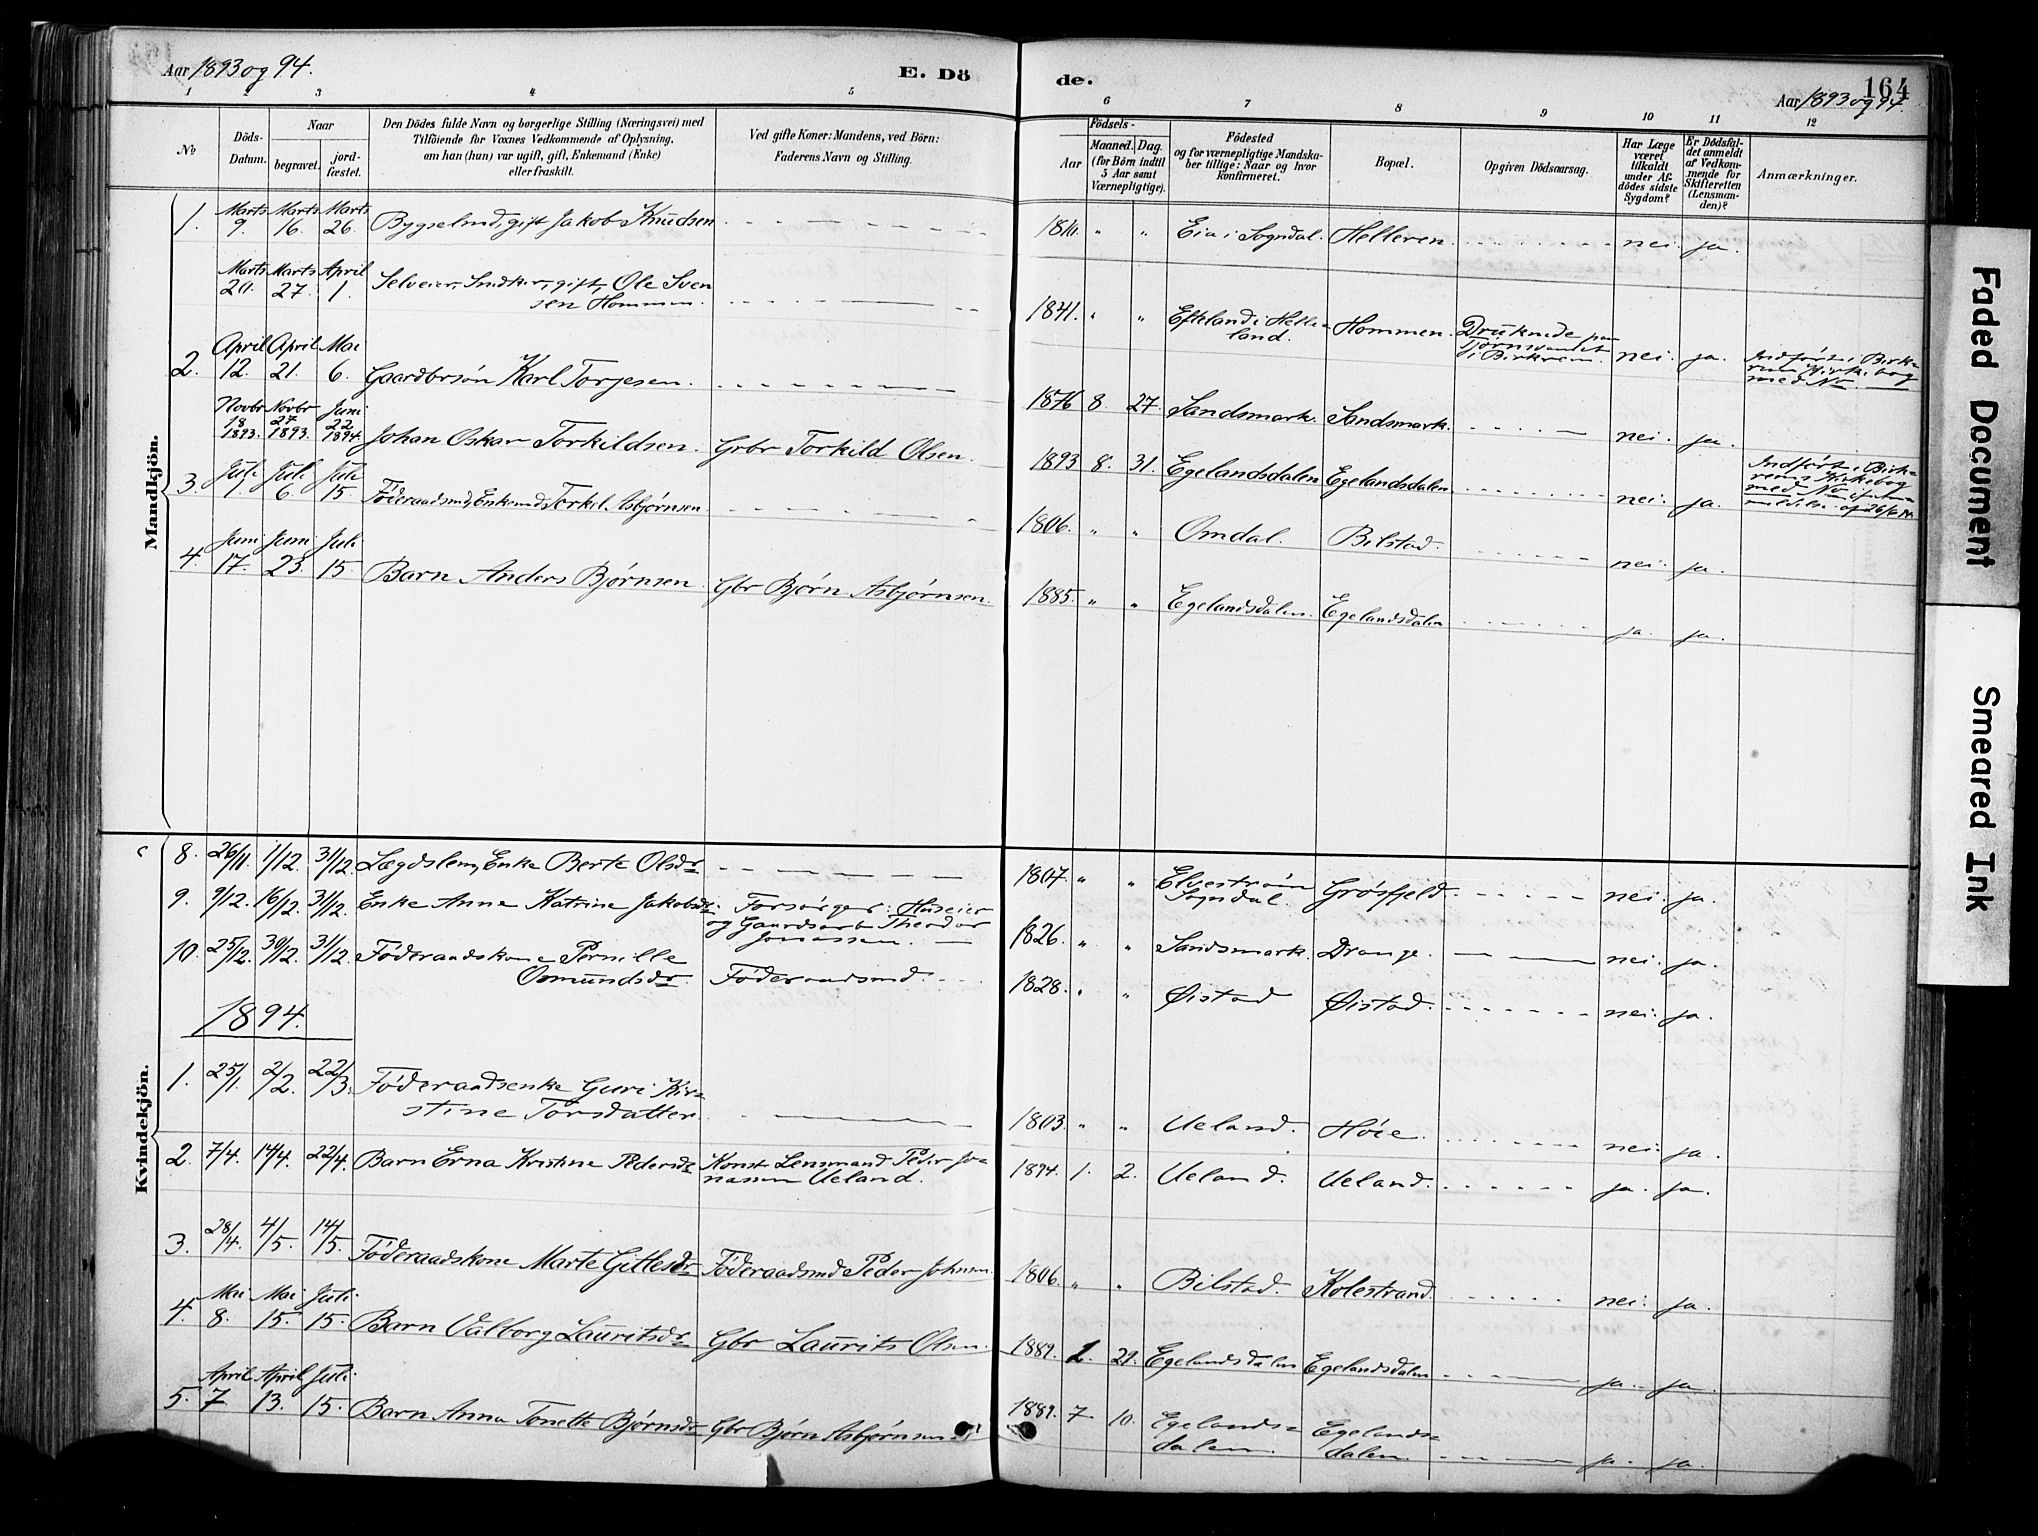 Aar 1893 og 94.
E. Dö
de.
164
Aar 1893 og 94.
1 2 3 4 5 6 7 8 9 10 11 12
No
Döds-
Datum.
Naar
begravet.
jord-
fæstet.
Den Dödes fulde Navn og borgerlige Stilling (Næringsvei) med
Tilföiende for Voxnes Vedkommende af Oplysning,
om han (hun) var ugift, gift, Enkemand (Enke)
eller fraskilt.
Ved gifte Koner: Mandens, ved Börn:
Faderens Navn og Stilling.
Födsels-
Aar
Maaned. Dag.
(for Börn indtil
5 Aar samt
Værnepligtige).
Födested
og for værnepligtige Mandska-
ber tillige: Naar og hvor
konfirmeret.
Bopæl.
Opgiven Dödsaarsag.
Har Læge
været
tilkaldt
under Af-
dödes sidste
Sygdom?
Er Dödsfal-
det anmeldt
af Vedkom-
mende for
Skifteretten
(Lensman-
den)?
Anmærkninger.
Mandkjön.
1. Marts 9. Marts 16. Marts 26. Bygselmd, gift Jakob Knudsen Eia i Sogndal. Helleren. nei. ja.
Marts 20. Marts 27. April 1. Selveier, Snedker, gift, Ole Sven
sen Hommen. 1841. " " Efteland i Helle-
land. Hommen. Druknede paa
Tjørnsvandet
i Birkrem. nei. ja. Indført i Birk-
rem Kirkebog
med No
2. April 12. April 21. Mai 6. Gaardbrsøn Karl Torjesen. 1876 8. 27. Sandsmark. Sandsmark. nei. ja.
Novbr 18 1893. Novbr 27 1893. Juni 22 1894. Johan Oskar Torkildsen. Grbr Torkild Olsen. 1893 8. 31. Egelandsdalen Egelandsdalen nei. ja. Indført i Birk-
rems Kirkebog
med No
3. Juli 1. Juli 6. Juli 15. Føderaadsmd, Enkemd Torkil Asbjørnsen 1806. " " Omdal. Bilstad. nei. ja.
4. Juni 17. Juni 23. Juli 15. Barn Anders Bjørnsen. Gbr Bjørn Asbjørnsen 1885. " " Egelandsdalen. Egelandsdalen ja. ja.
Kvindekjön.
8. 26/11. 1/12. 31/12. Lægdslem, Enke Berte Olsdr 1807. " " Elvestrøm
Sogndal. Grøsfjeld. nei. ja.
9. 9/12. 16/12. 31/12. Enke Anne Katrine Jakobsdr. Forsørger: Huseier
og Gaardsarb Theodor
Jonassen. 1826. " " Sandsmark. Drange. nei. ja.
10. 25/12. 30/12. 31/12. Føderaadskone Pernille
Osmundsdr. Føderaadsmd. 1828. " " Øistad Øistad. nei. ja.
1894.
1. 25/1. 2/2. 22/3. Føderaadsenke Guri Kir-
stine Torsdatter. 1803. " " Ueland. Høie. nei. ja.
2. 7/4. 14/4. 22/4. Barn Erna Kristine Pedersdr Konst. Lensmand Peder Jo-
nassen Ueland. 1894. 1. 2. Ueland. Ueland. ja. ja.
3. 28/4. 4/5. 14/5. Føderaadskone Marte Gitlesdr Føderaadsmd Peder Johnsen. 1806. " " Bilstad. Kolestrand. nei. ja.
4. Mai 8. Mai 15. Juli 15. Barn Valborg Lauritsdr Gbr Laurits Olsen. 1889. 1. 29. Egelandsdalen Egelandsdalen ja. ja.
5. April 7 April 13. Juli 15. Barn Anna Tonette Bjørnsdr Gbr Bjørn Asbjørnsen 1889. 7. 10. Egelands-
dalen. Egelands-
dalen. ja. ja.
Faded Document
Smeared Ink